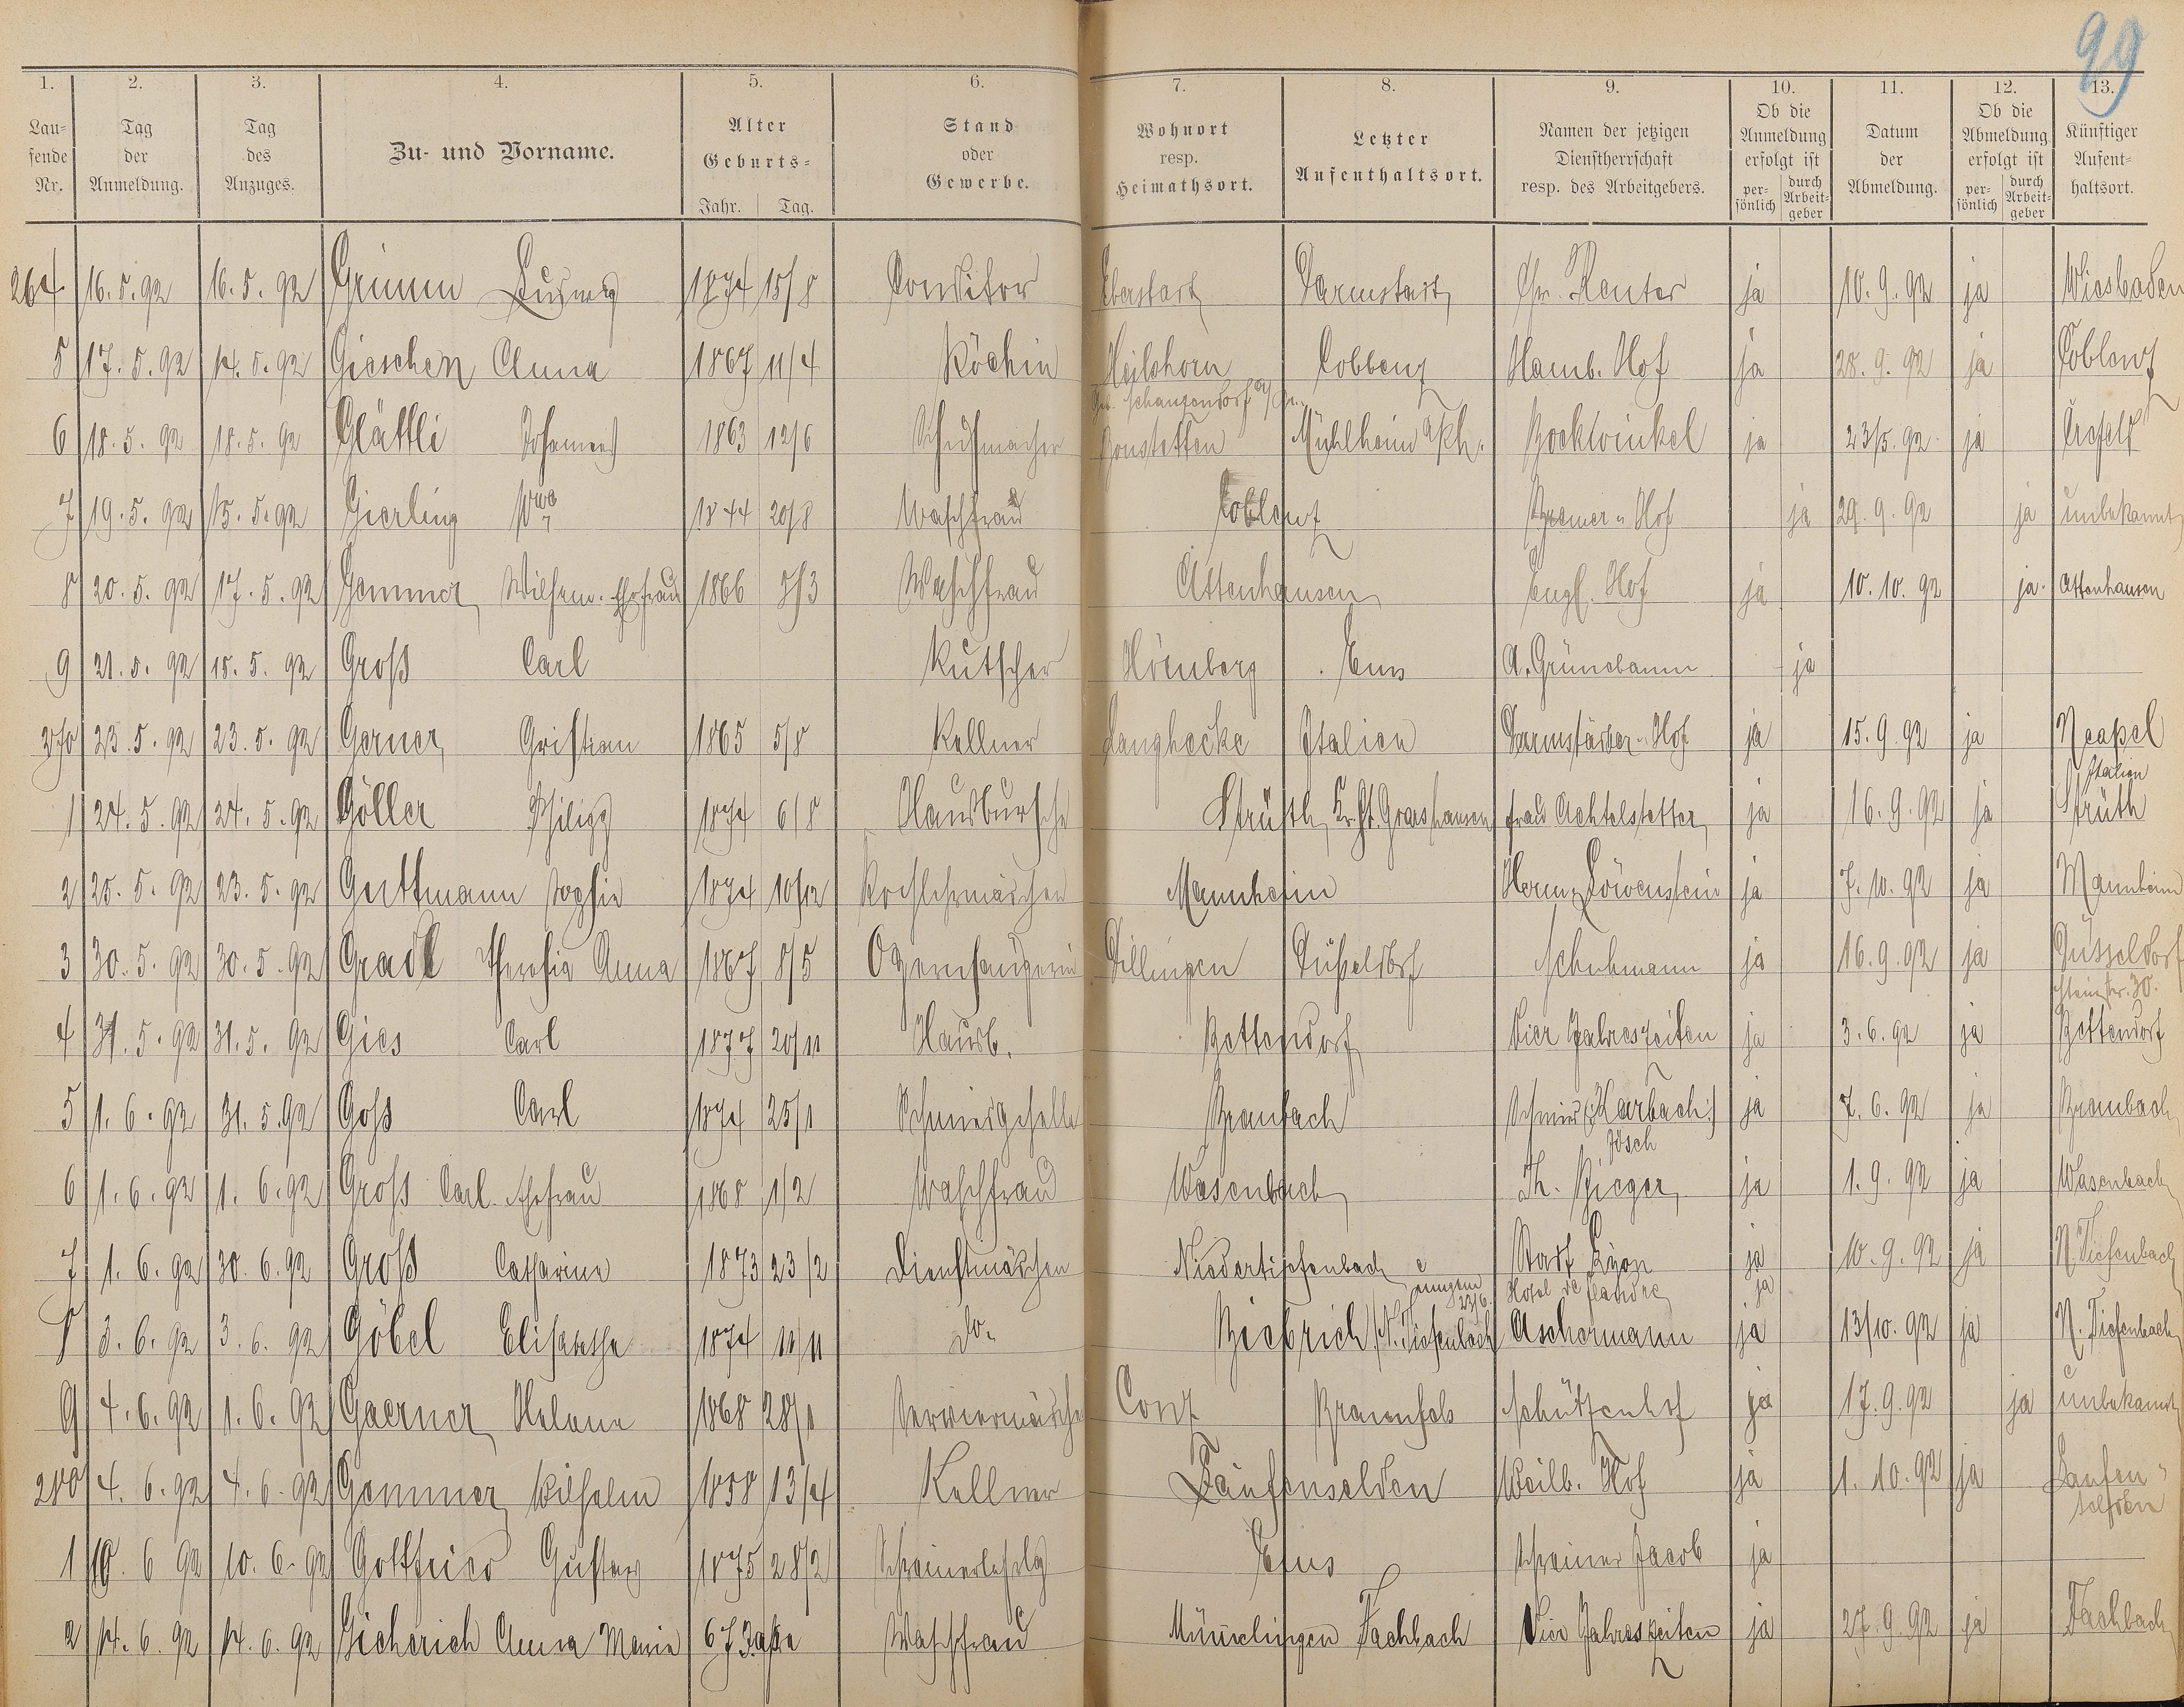 99
1. 2. 3. 4. 5. 6. 7. 8. 9. 10. 11. 12. 13.
Lau- fende Nr. | Tag der Anmeldung. | Tag des Anzuges. | Zu- und Vorname. | Alter Geburts- Jahr. Tag. | Stand oder Gewerbe. | Wohnort resp. Heimathsort. | Letzter Aufenthaltsort. | Namen der jetzigen Dienstherrschaft resp. des Arbeitgebers. | Ob die Anmeldung erfolgt ist per- sönlich durch Arbeit- geber | Datum der Abmeldung. | Ob die Abmeldung erfolgt ist per- sönlich durch Arbeit- geber | Künftiger Aufent- haltsort.
264 16.5.92 16.5.92 Grimm Ludwig 1874 15/8 Conditor Eberstadt Darmstadt Chr. Reuter ja 10.9.92 ja Wiesbaden
5 17.5.92 14.5.92 Gieschen Anna 1867 11/4 Köchin Heilshorn Coblenz Hamb. Hof ja 28.9.92 ja Coblenz
6 18.5.92 18.5.92 Glättli Johannes 1863 12/6 Schuhmacher Bonstetten Mühlheim a/Rh. Bocklvinkel ja 23/5.92 ja Crefeld
7 19.5.92 15.5.92 Gierling Wwe 1844 20/8 Waschfrau Coblenz Bremer-Hof ja 29.9.92 ja unbekannt
8 20.5.92 17.5.92 Gemmer, Wilhelm. Ehefrau 1866 7/3 Waschfrau Attenhausen Engl. Hof ja 10.10.92 ja. Attenhausen
9 21.5.92 15.5.92 Groß Carl Kutscher Hömberg Ems A. Grünebaum ja
270 23.5.92 23.5.92 Gerner, Christian 1865 5/8 Kellner Langhecke Italien Darmstädter-Hof ja 15.9.92 ja Neapel Italien
1 24.5.92 24.5.92 Göller Philipp 1874 6/8 Hausbursche Strüth, Kr. St. Goarshausen Frau Achtelstetter ja 16.9.92 ja Strüth
2 25.5.92 23.5.92 Guttmann Sophie 1874 10/12 Kochlehrmädchen Mannheim Herm. Löwenstein ja 7.10.92 ja Mannheim
3 30.5.92 30.5.92 Gradl Theresia Anna 1867 8/5 Opernsängerin Dillingen Düsseldorf Schuhmann ja 16.9.92 ja Düsseldorf Steinstr. 30.
4 31.5.92 31.5.92 Gies Carl 1877 20/11 Hausb. Bettendorf Vier Jahreszeiten ja 3.6.92 ja Bettendorf
5 1.6.92 31.5.92 Goß Carl 1874 25/1 Schmiedgeselle Brambach Schmied (Karbach) Jösch ja 7.6.92 ja Brambach
6 1.6.92 1.6.92 Groß Carl Ehefrau 1868 1/2 Waschfrau Wasenbach Th. Rieger ja 1.9.92 ja Wasenbach
7 1.6.92 30.6.92 Groß Catharine 1873 23/2 Dienstmädchen Niedertiefenbach Stadt Lyon ja 10.9.92 ja N. Tiefenbach
23/6. Hotel de Flandre ja
8 3.6.92 3.6.92 Göbel Elisabetha 1874 11/11 do. Biebrich/N. Tiefenbach Aschermann ja 13/10.92 ja N. Tiefenbach
9 4.6.92 1.6.92 Gaerner, Helene 1868 28/1 Serviermädchen Conz Braunfels Schützenhof ja 17.9.92 ja unbekannt
280 4.6.92 4.6.92 Gemmer, Wilhelm 1858 13/4 Kellner Laufenselden Weilb. Hof ja 1.10.92 ja Laufen- selden
1 10.6.92 10.6.92 Gottfried Gustav 1875 28/2 Schreinerlehrlg Ems Schreiner Jacob ja
2 14.6.92 14.6.92 Gicherich Anna Marie 67 Jahre Waschfrau Fachbach Vier Jahreszeiten ja 27.9.92 ja Fachbach